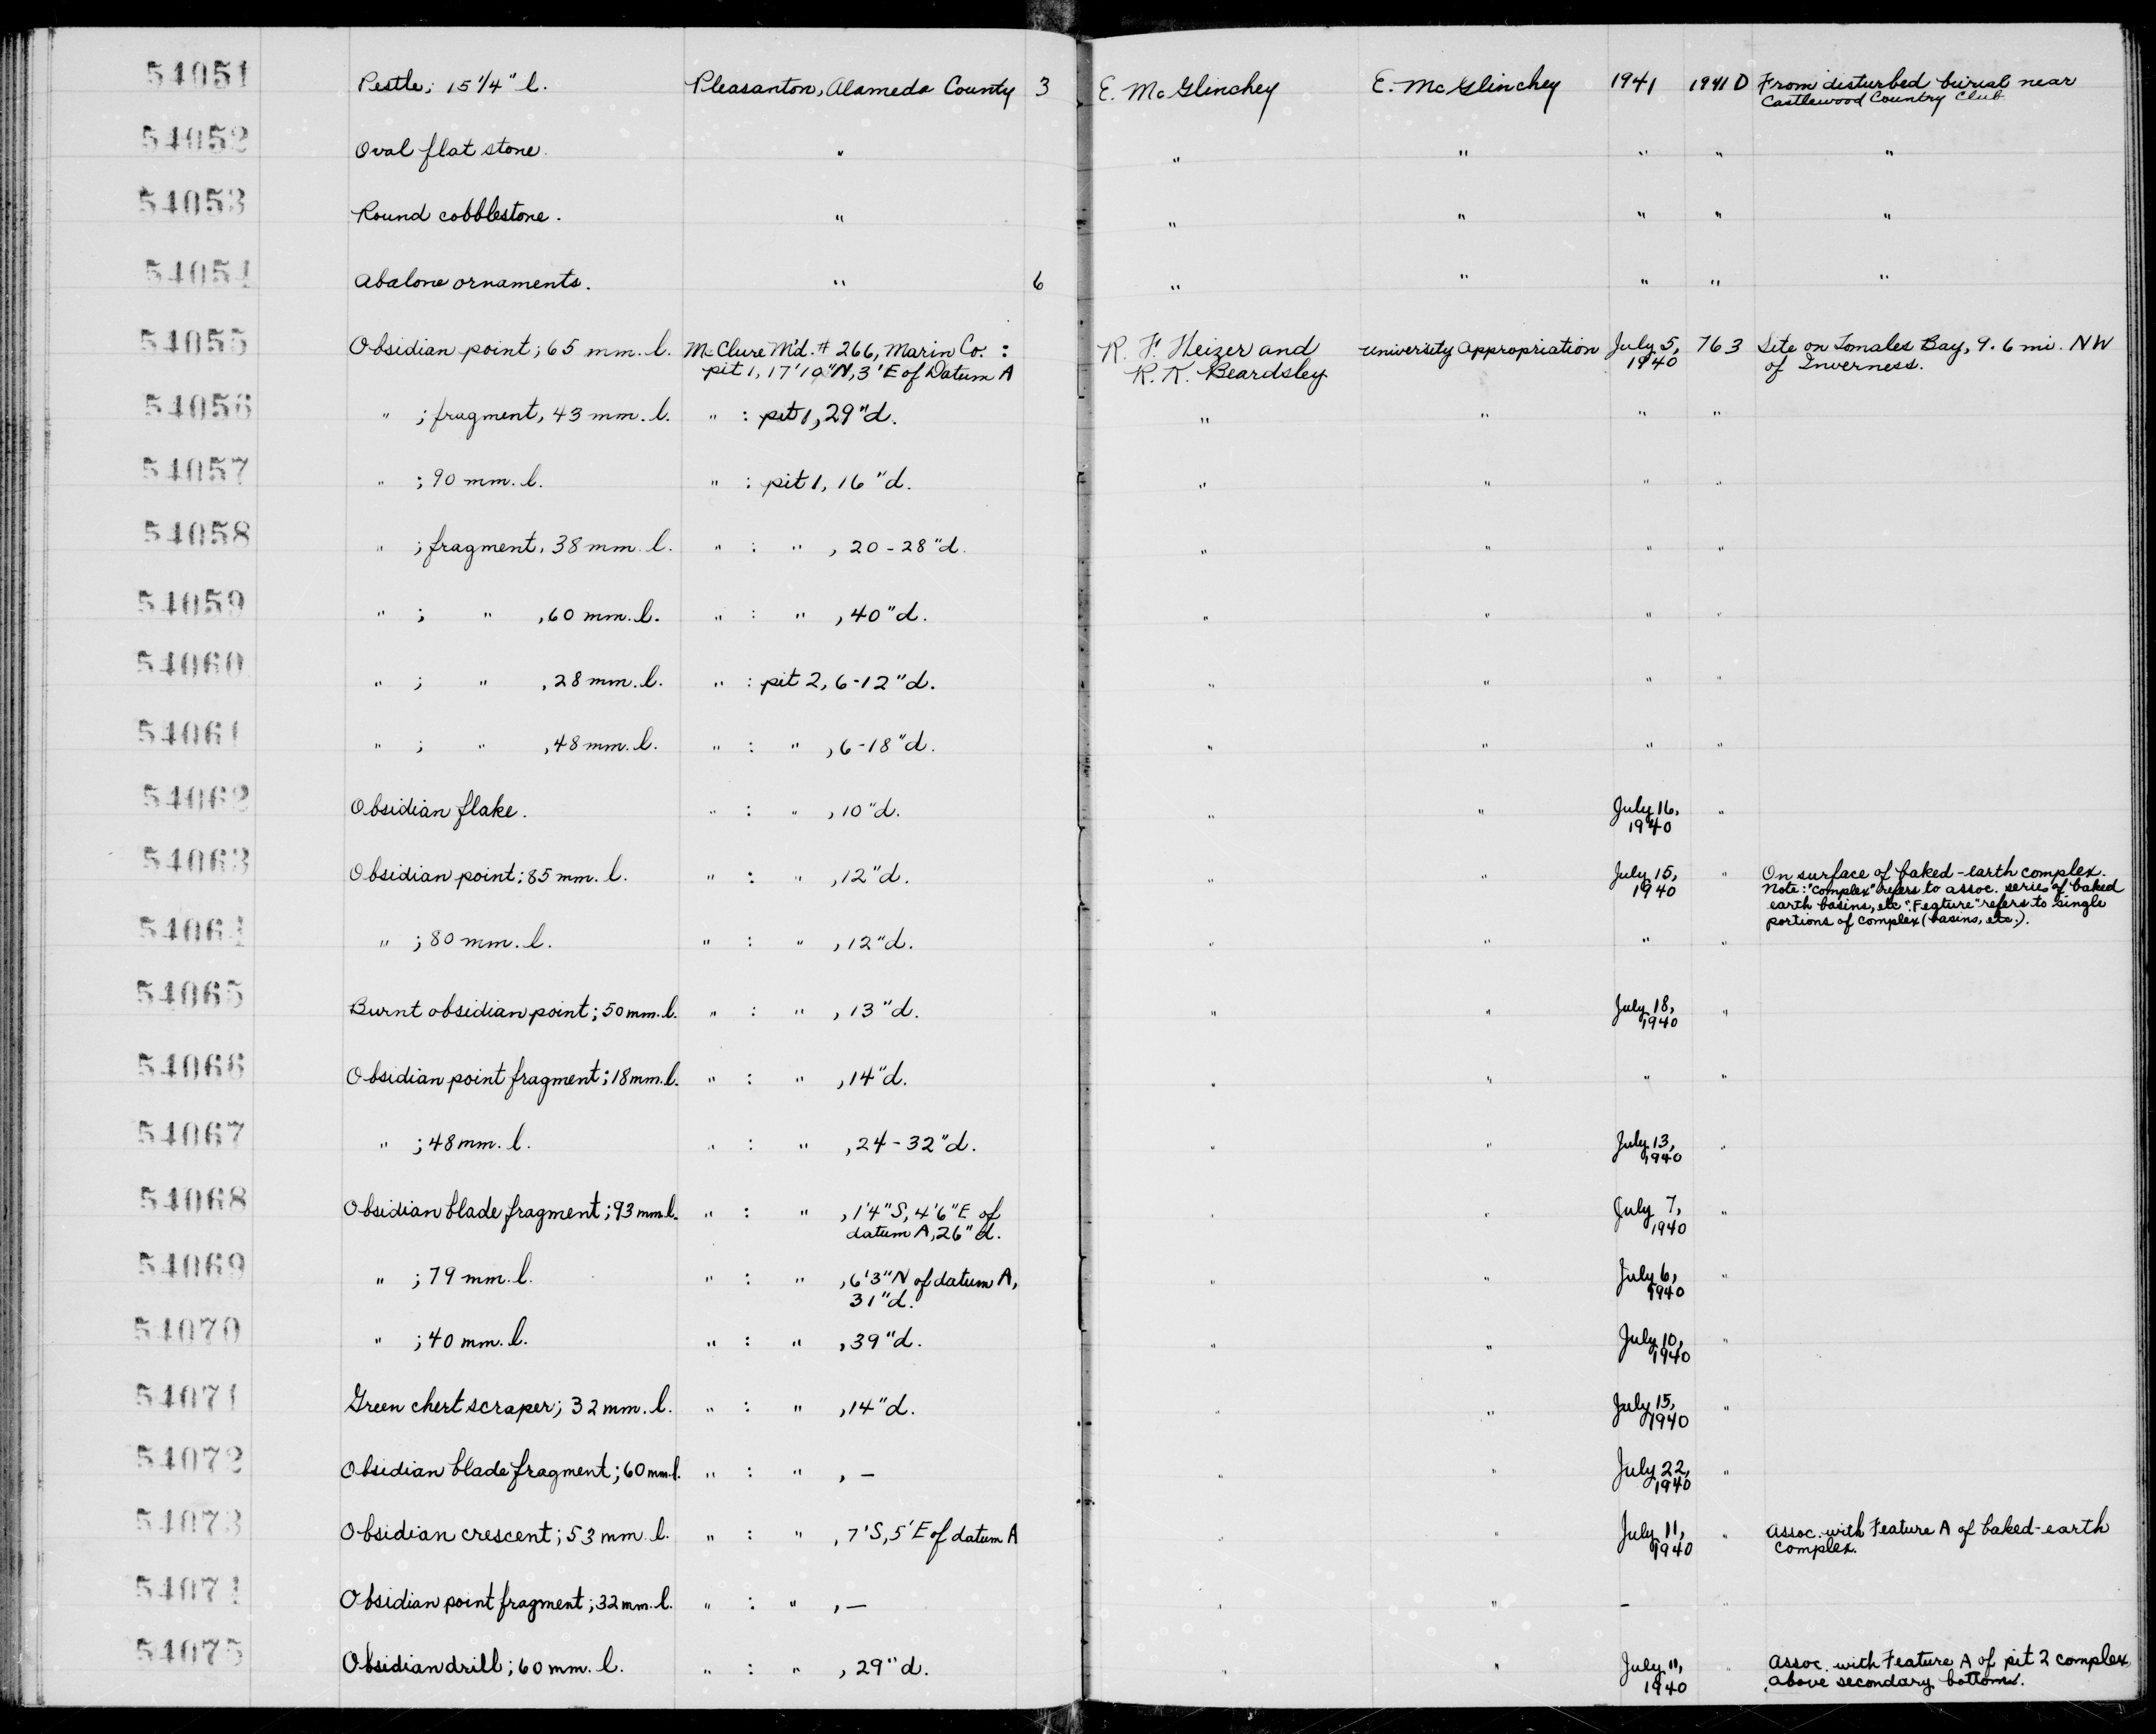 54051 Pestle; 15 1/4" l. Pleasanton, Alameda County 3 E. McGlinchey E. McGlinchey 1941 1941 D From disturbed burial near
Castlewood Country Club
54052 Oval flat stone. " " " " " "
54053 Round cobblestone. " " " " " "
54054 Abalone ornaments. " 6 " " " " "
54055 Obsidian point; 65 mm. l. McClure M'd. # 266, Marin Co. : R. F. Heizer and University Appropriation July 5, 763 Site on Tomales Bay, 9.6 mi. NW
pit 1, 17'10"N, 3'E of Datum A R. K. Beardsley 1940 of Inverness.
54056 " ; fragment, 43 mm. l. " : pit 1, 29"d. " " " "
54057 " ; 90 mm. l. " : pit 1, 16"d. " " " "
54058 " ; fragment, 38 mm. l. " : " , 20-28"d. " " " "
54059 " ; " , 60 mm. l. " : " , 40"d. " " " "
54060 " ; " , 28 mm. l. " : pit 2, 6-12"d. " " " "
54061 " ; " , 48 mm. l. " : " , 6-18"d. " " " "
54062 Obsidian flake. " : " , 10"d. " " July 16, "
1940
54063 Obsidian point; 85 mm. l. " : " , 12"d. " " July 15, " On surface of baked-earth complex.
1940 Note: "Complex" refers to assoc. series of baked
earth basins, etc. "Feature" refers to single
portions of complex (basins, etc.).
54064 " ; 80 mm. l. " : " , 12"d. " " " "
54065 Burnt obsidian point; 50 mm. l. " : " , 13"d. " " July 18, "
1940
54066 Obsidian point fragment; 18 mm. l. " : " , 14"d. " " " "
54067 " ; 48 mm. l. " : " , 24-32"d. " " July 13, "
1940
54068 Obsidian blade fragment; 93 mm. l. " : " , 1'4"S, 4'6"E of " " July 7, "
datum A, 26"d. 1940
54069 " ; 79 mm. l. " : " , 6'3"N of datum A, " " July 6, "
31"d. 1940
54070 " ; 40 mm. l. " : " , 39"d. " " July 10, "
1940
54071 Green chert scraper; 32 mm. l. " : " , 14"d. " " July 15, "
1940
54072 Obsidian blade fragment; 60 mm. l. " : " , — " " July 22, "
1940
54073 Obsidian crescent; 53 mm. l. " : " , 7'S, 5'E of datum A " " July 11, " Assoc. with Feature A of baked-earth
1940 complex.
54074 Obsidian point fragment; 32 mm. l. " : " , — " " — "
54075 Obsidian drill; 60 mm. l. " : " , 29"d. " " July 11, " Assoc. with Feature A of pit 2 complex,
1940 above secondary bottom.